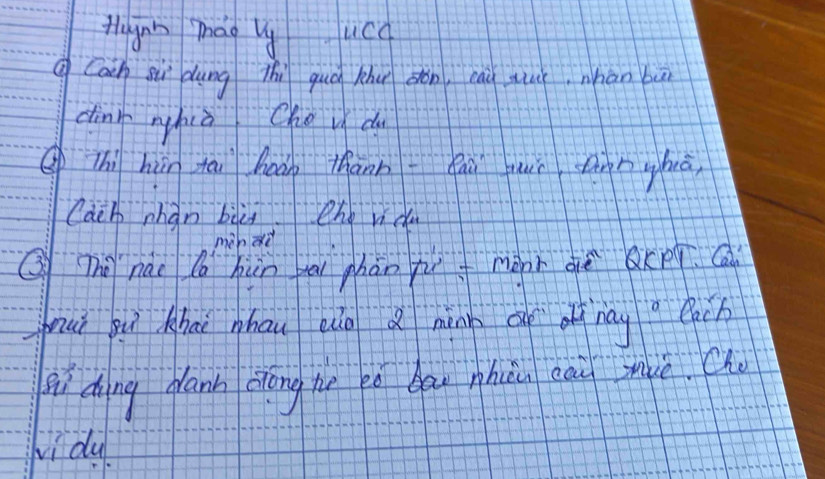 Huỳnh Thảo Vy UCC
① Cách sử dụng thì quá khứ đơn, cấu trúc, nhận biết
định nghĩa. Cho ví dụ
② Thì hiện tại hoàn thành - Cấu trúc, định nghĩa,
Cách nhận biết. Cho ví dụ
mệnh đề
③ Thế nào là hiện tại phân từ + mệnh đề QKPT. Cấu
trúc sự khác nhau của 2 mệnh đề này. Cách
sử dụng danh động từ có bao nhiêu cấu trúc. Cho
ví dụ.